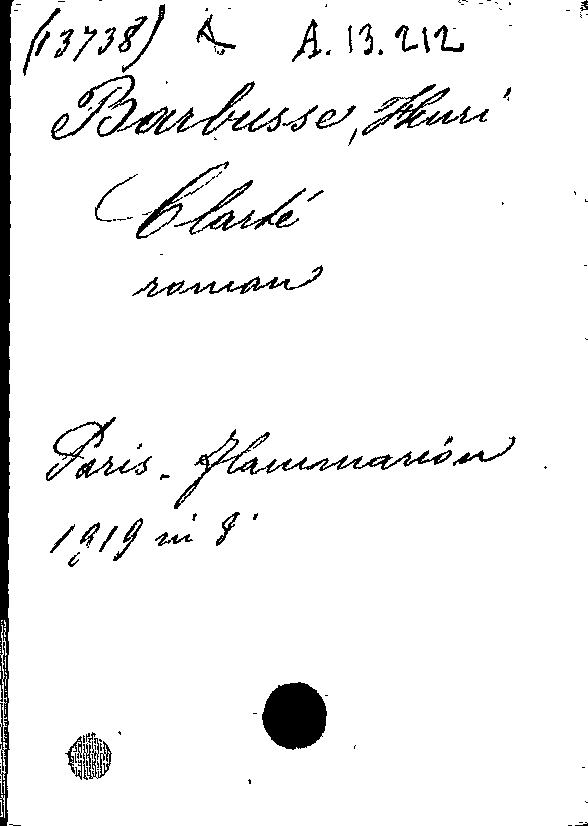 (13738) A A.13.212
Barbusse, Henri
Clarté
roman
Paris - Flammarion
1919 in 8°